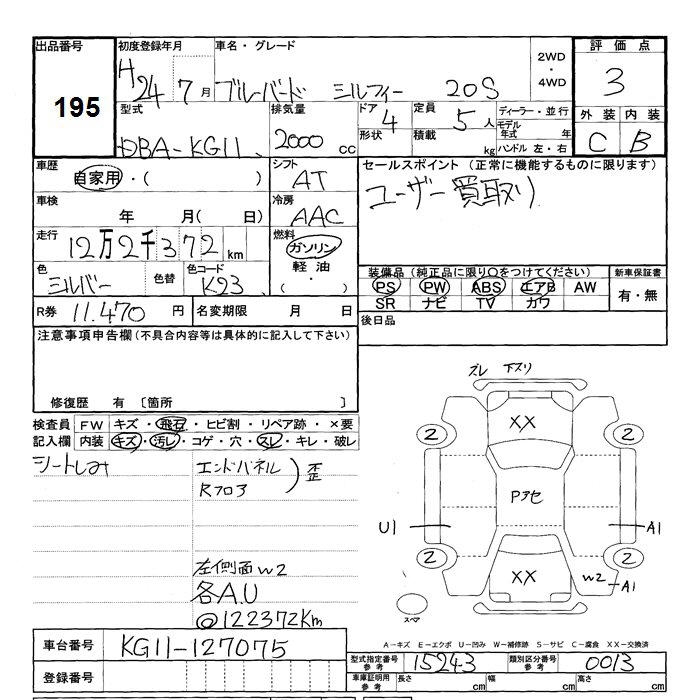 出品番号 初度登録年月 車名・グレード 評価点
195 H24 7月 ブルーバード シルフィー 20S 2WD・4WD 3
型式 排気量 ドア 4 定員 5人 ディーラー・並行 外装 内装
DBA-KG11 2000cc 形状 積載 kg モデル年式 年 C B
ハンドル 左・右
車歴 自家用・( ) シフト AT セールスポイント (正常に機能するものに限ります)
車検 年 月( 日) 冷房 AAC ユーザー買取り
走行 12万2千372km 燃料 ガソリン 軽油 ( ・ )
色 シルバー 色替 色コード K23 装備品 (純正品に限り○をつけてください) 新車保証書
PS PW ABS エアB AW 有・無
SR ナビ TV カワ
R券 11.470円 名変期限 月 日 後日品
注意事項申告欄 (不具合内容等は具体的に記入して下さい)
修復歴 有 〔箇所 〕
検査員 FW キズ・飛石・ヒビ割・リペア跡・×要
記入欄 内装 キズ・汚レ・コゲ・穴・スレ・キレ・破レ
シートしみ エンドパネル
Rフロア 歪
左側面W2
各A.U
@122372Km
ズレ 下スリ
XX
2 2
Pアセ
U1 A1
2 2
XX W2 A1
スペア
A-キズ E-エクボ U-凹み W-補修跡 S-サビ C-腐食 XX-交換済
車台番号 KG11-127075
型式指定番号 参考 15243 類別区分番号 参考 0013
登録番号
車庫証明用 参考 長さ cm 幅 cm 高さ cm